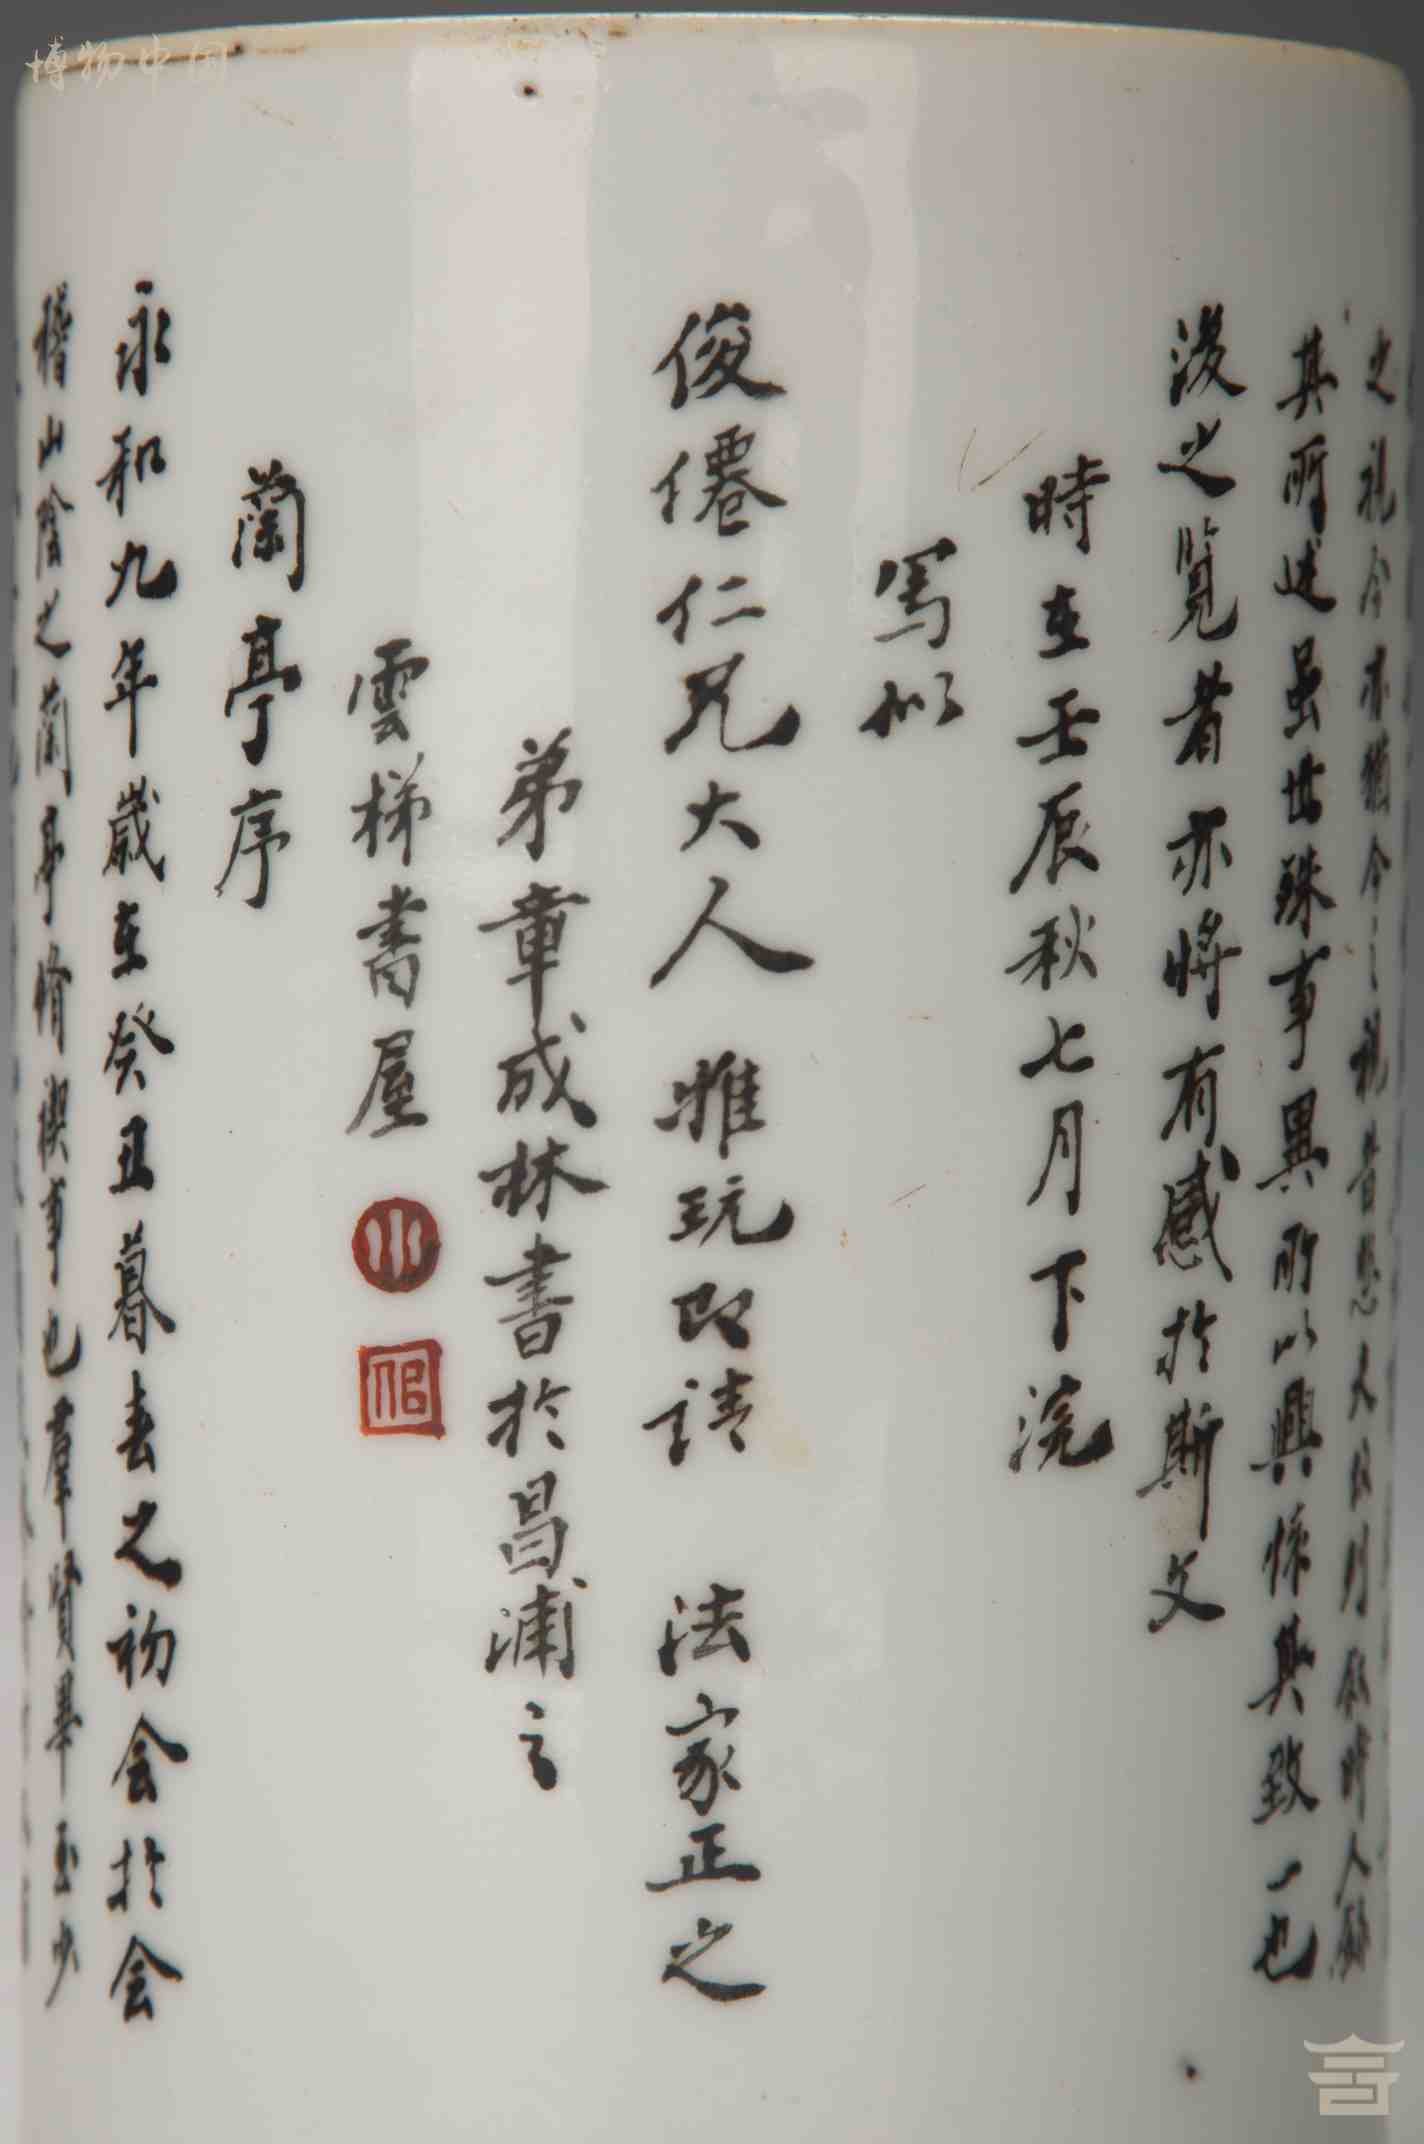 博物中国
之視今亦猶今之視昔悲夫故列叙時人錄
其所述雖世殊事異所以興懷其致一也
後之覽者亦將有感於斯文
時在壬辰秋七月下浣
寫似
俊僊仁兄大人 雅玩即請 法家正之
弟章成林書於昌浦之
雲梯書屋
蘭亭序
永和九年歲在癸丑暮春之初会於会
稽山陰之蘭亭脩禊事也羣賢畢至少